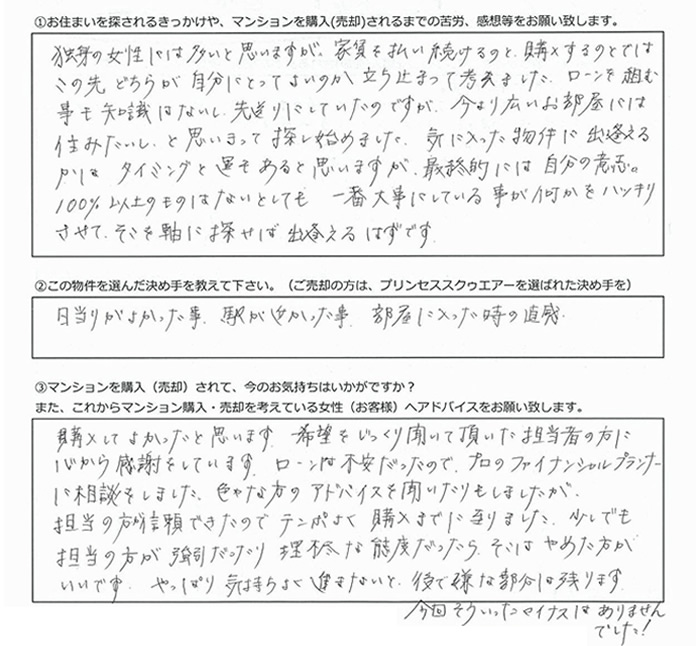 ①お住まいを探されるきっかけや、マンションを購入(売却)されるまでの苦労、感想等をお願い致します。
独身の女性には多いと思いますが、家賃を払い続けるのと、購入するのとでは
この先 どちらが 自分にとってよいのか 立ち止まって考えました。ローンを組む
事も 知識はないし、先送りにしていたのですが、今より広いお部屋には
住みたいし、と思い立って 探し始めました。気に入った物件に 出逢える
かは タイミングと運もあると思いますが、最終的には 自分の意志。
100%以上のものはないとしても 一番大事にしている事が何かをハッキリ
させて、そこを軸に探せば 出逢えるはずです。
②この物件を選んだ決め手を教えて下さい。（ご売却の方は、プリンセススクゥエアーを選ばれた決め手を）
日当りがよかった事、駅が近かった事、部屋に入った時の直感。
③マンションを購入（売却）されて、今のお気持ちはいかがですか？
また、これからマンション購入・売却を考えている女性（お客様）へアドバイスをお願い致します。
購入してよかったと思います。希望をじっくり聞いて頂いた担当者の方に
心から感謝をしています。ローンは不安だったので、プロのファイナンシャルプランナー
に相談をしました。色々な方のアドバイスを聞いたりもしましたが、
担当の方が信頼できたので テンポよく 購入までに至りました。少しでも
担当の方が 強引だったり 理不尽な態度だったら、そこはやめた方が
いいです。やっぱり 気持ちよく進まないと、後で嫌な部分は残ります。
今回そういったマイナスは ありません
でした！